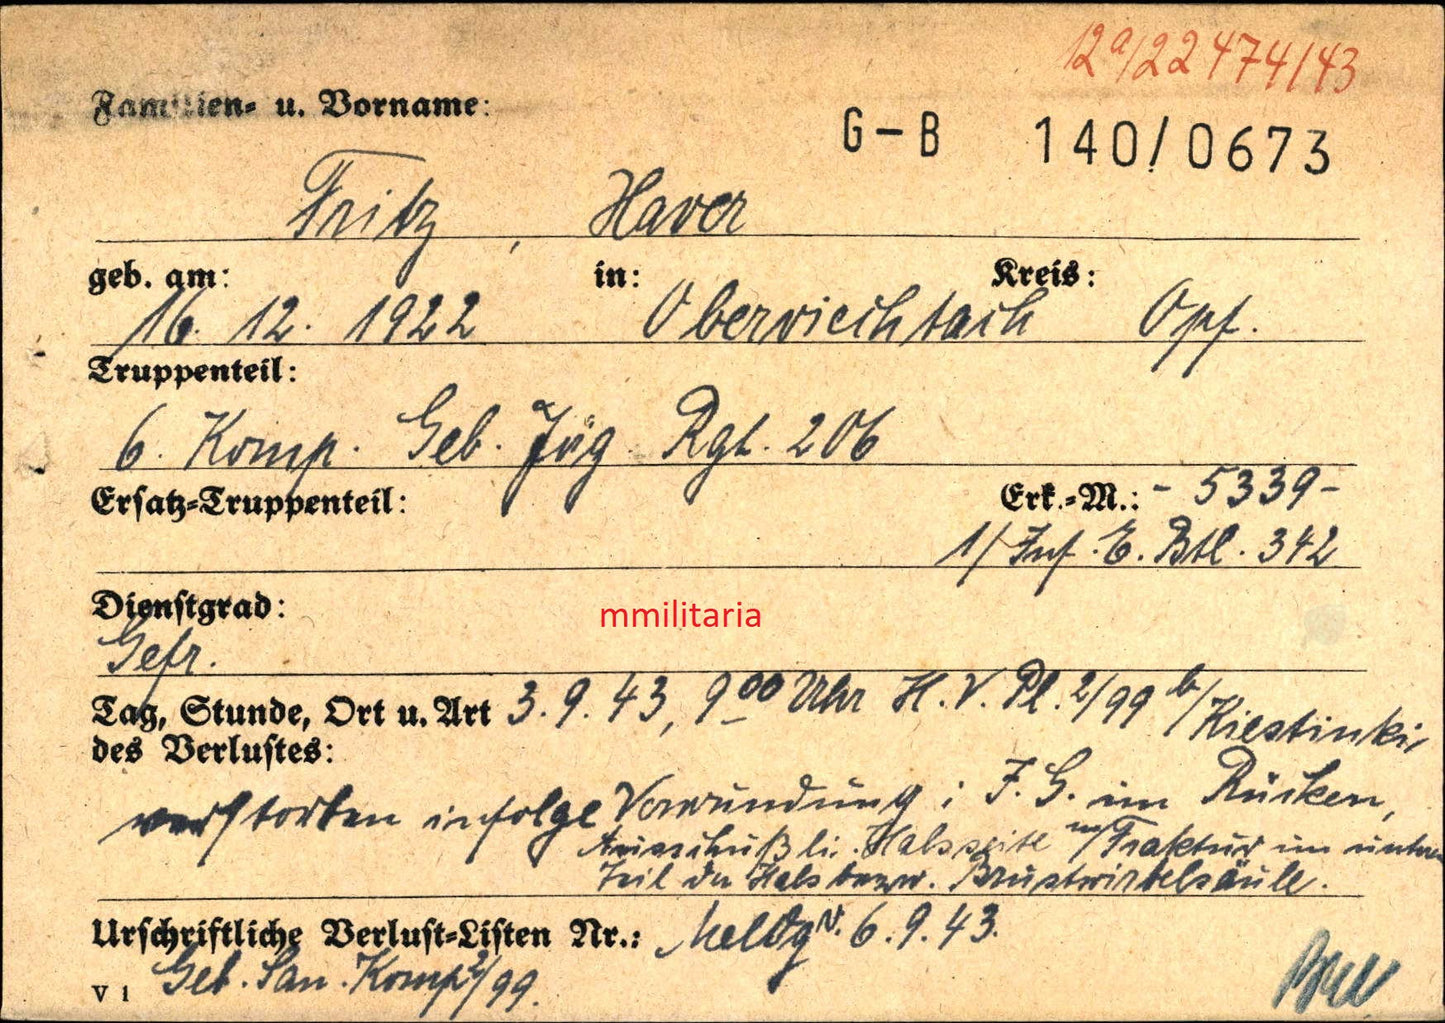 12a/22474/43
Familien- u. Vorname:
G-B 140/0673
Fritz, Xaver
geb. am: in: Kreis:
16. 12. 1922 Oberviechtach Opf.
Truppenteil:
6. Komp. Geb. Jäg. Rgt. 206
Ersatz-Truppenteil: Erk.-M.: - 5339 -
1/ Inf. E. Btl. 342
Dienstgrad:
mmilitaria
Gefr.
Tag, Stunde, Ort u. Art 3. 9. 43, 9 00 Uhr H. V. Pl. 2/99 b/Kiestinki,
des Verlustes:
verstorben infolge Verwundung: I. G. im Rücken,
Ausschuß li. Halsseite m/Fraktur im unteren
Teil der Hals bezw. Brustwirbelsäule.
Urschriftliche Verlust-Listen Nr.: Meldg v. 6. 9. 43.
V 1 Geb. San. Komp 2/99.